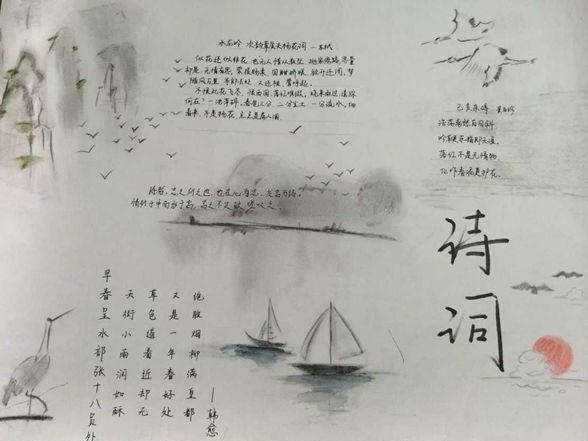 水龙吟 次韵章质夫杨花词 —苏轼
似花还似非花,也无人惜从教坠。抛家傍路,思量
却是,无情有思。萦损柔肠,困酣娇眼,欲开还闭。梦
随风万里,寻郎去处,又还被,莺呼起。
不恨此花飞尽,恨西园,落红难缀。晓来雨过,遗踪
何在?一池萍碎。春色三分,二分尘土,一分流水。细
看来,不是杨花,点点是离人泪。
己亥杂诗 龚自珍
浩荡离愁白日斜
吟鞭东指即天涯。
落红不是无情物,
化作春泥更护花。
诗者,志之所之也,在心为志,发言为诗。
情动于中而形于言,言之不足故嗟叹之。
诗词
早春呈水部张十八员外
天街小雨润如酥
草色遥看近却无
又是一年春好处
绝胜烟柳满皇都
—韩愈